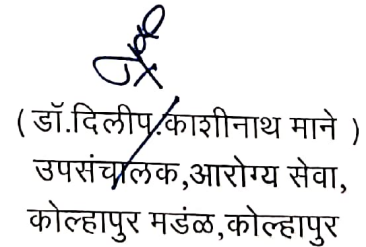 ( डॉ.दिलीप.काशीनाथ माने )
उपसंचालक,आरोग्य सेवा,
कोल्हापुर मडंळ,कोल्हापुर